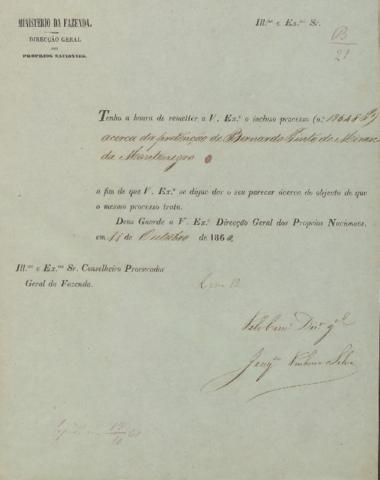 MINISTERIO DA FAZENDA.
DIRECÇÃO GERAL
DOS
PROPRIOS NACIONAES.
Ill.mo e Ex.mo Sr.
B
21
Tenho a honra de remetter a V. Ex.a o incluso processo (n.o
acerca da pretenção de Bernardo Pinto de
de Montenegro
a fim de que V. Ex.a se digne dar o seu parecer ácerca do objecto de que
o mesmo processo trata.
Deus Guarde a V. Ex.a Direcção Geral dos Proprios Nacionaes,
em 11 de Outubro de 186
Ill.mo e Ex.mo Sr. Conselheiro Procurador
Geral da Fazenda.
Pelo Cons.o Dir.or g.al
e Silva